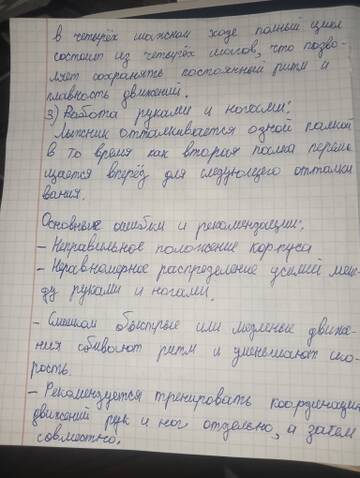 в четырёх шажном ходе полный цикл
состоит из четырёх шагов, что позво-
ляет сохранять постоянный ритм и
плавность движений.
3) Работа руками и ногами:
лыжник отталкивается одной палкой
в то время как вторая палка переме-
щается вперёд для следующего отталки
вания.
Основные ошибки и рекомендации:
- Неправильное положение корпуса
- Неравномерное распределение усилий меж-
ду руками и ногами.
- Слишком быстрые или медленые движе-
ния сбивают ритм и уменьшают ско-
рость.
- Рекомендуется тренировать координацию
движений рук и ног отдельно, а затем
совместно.